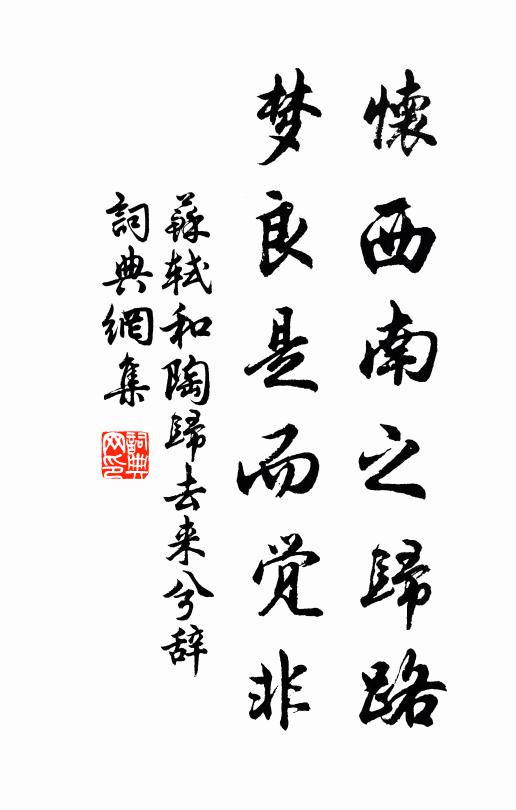 懷西南之歸路
梦良是而觉非
蘇軾和陶歸去来兮辞
詞典網集
詞典網印